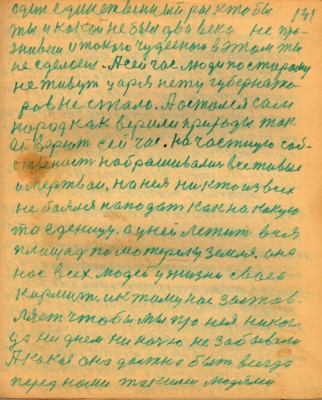 один единственный раз хтобы 141
ты и какой не был два века не про
живеш и такого чудесного в этом ты
не сделаеш. А сейчас люди по старому
не живут царя нету губернато
ров не стало. А остался сам
народ как верили природы так
ей верют сейчас. на частную соб-
ственост набрасивалис все живые
и мертваи. на нея никто из всех
не боялся нападат как на какую
то еденицу. а у ней лежит вся
площад по матерыку земля. она
нас всех людей у жизни своей
кармит. и к тому нас застав-
ляет чтобы мы про нея никог-
да ни днем ни ночю не забывали
А какая она должна быт всегда
перед нами такими людями